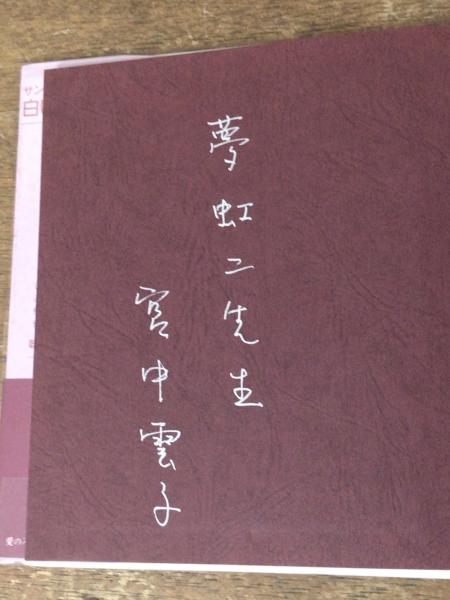 夢虹二先生
宮中雲子
サン
愛の